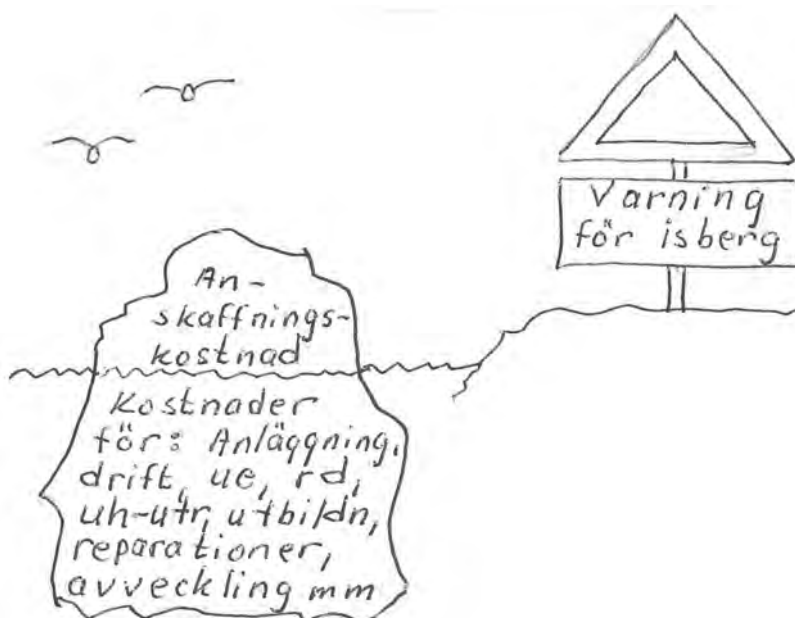 Varning
för isberg
An-
skaffnings-
kostnad
Kostnader
för: Anläggning,
drift, ue, rd,
uh-utr, utbildn,
reparationer,
avveckling mm